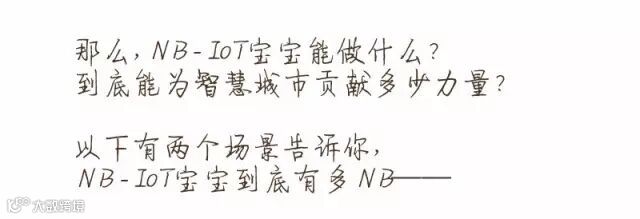 那么,NB-IoT宝宝能做什么?
到底能为智慧城市贡献多少力量?
以下有两个场景告诉你,
NB-IoT宝宝到底有多NB——
大数跨境